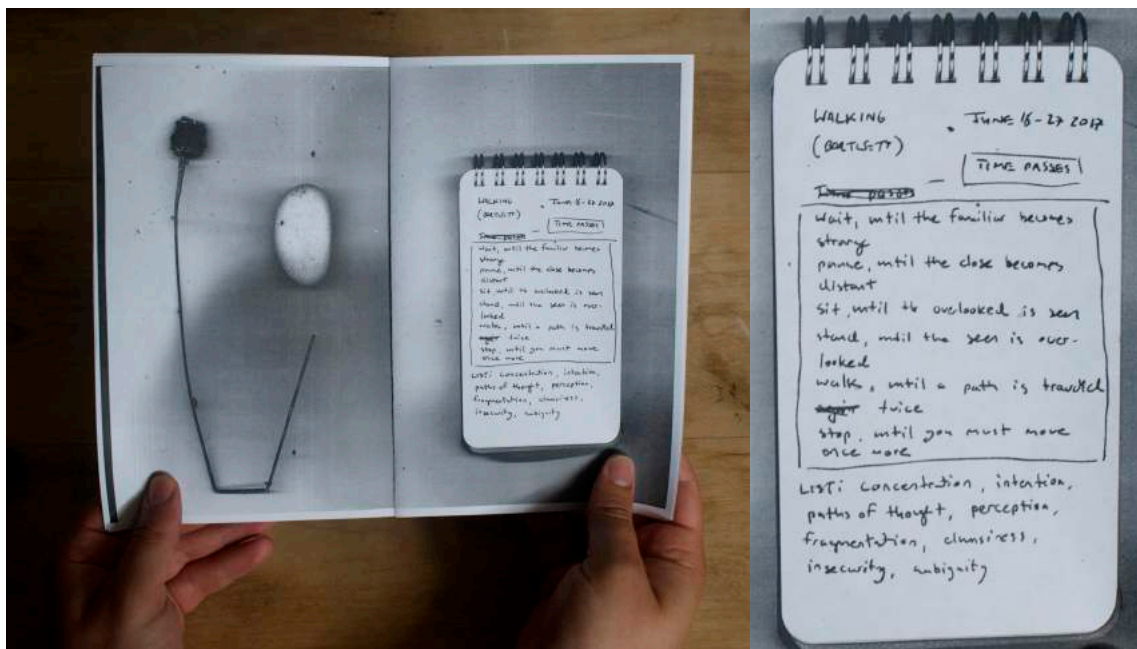 WALKING
(BARTLETT)
. JUNE 16-27 2017
TIME PASSES
Time passes —
wait, until the familiar becomes
strange
pause, until the close becomes
distant
sit, until the overlooked is seen
stand, until the seen is over-
looked
walk, until a path is travelled
twice
stop, until you must move
once more
LIST: concentration, intention,
paths of thought, perception,
fragmentation, clumsiness,
insecurity, ambiguity
WALKING
(BARTLETT)
. JUNE 16-27 2017
TIME PASSES
Time passes —
wait, until the familiar becomes
strange
pause, until the close becomes
distant
sit, until the overlooked is seen
stand, until the seen is over-
looked
walk, until a path is travelled
twice
stop, until you must move
once more
LIST: concentration, intention,
paths of thought, perception,
fragmentation, clumsiness,
insecurity, ambiguity